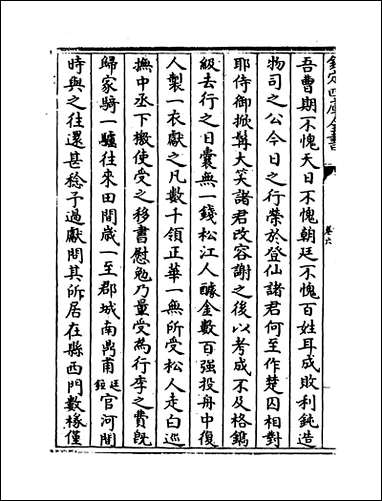 欽定四庫全書
卷六
吾曹期不愧天日不愧朝廷不愧百姓耳成敗利鈍造
物司之公今日之行榮於登仙諸君何至作楚囚相對
耶侍御掀髯大笑諸君改容謝之後以考成不及格鐫
級去行之日囊無一錢松江人醵金數百強投舟中復
人製一衣獻之凡數千領正華一無所受松人走白巡
撫中丞下檄使受之移書慰勉乃量受為行李之費旣
歸家騎一驢往來田間歲一至郡城南鼎甫廷鉉官河間
時與之往還甚稔予過獻問其所居在縣西門數椽僅